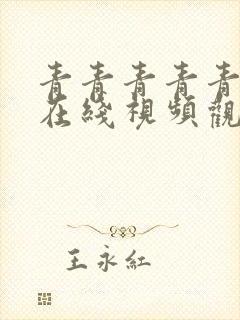 青青青青青
在綫視頻觀
王永紅